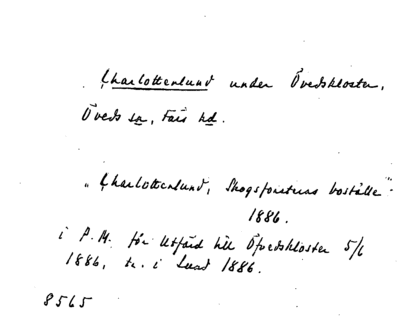 Charlottenlund under Övedskloster,
Öveds sn, Färs hd.
"Charlottenlund, Skogsförstens boställe"
1886.
i P.M. för Utfärd till Öfvedskloster 5/6
1886, tr. i Lund 1886.
8565